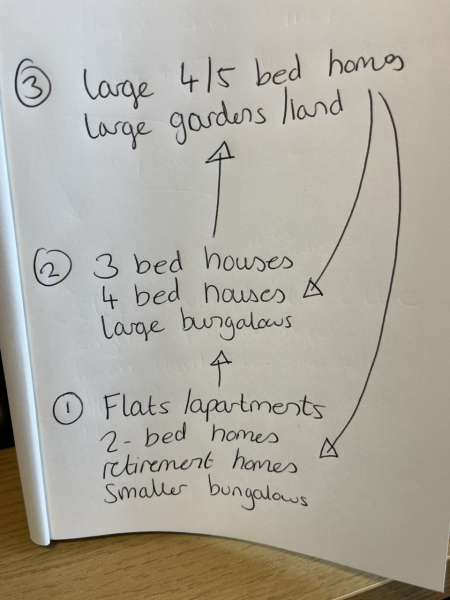 ③ large 4/5 bed homes
large gardens/land
② 3 bed houses
4 bed houses
large bungalows
① Flats/apartments
2-bed homes
retirement homes
Smaller bungalows